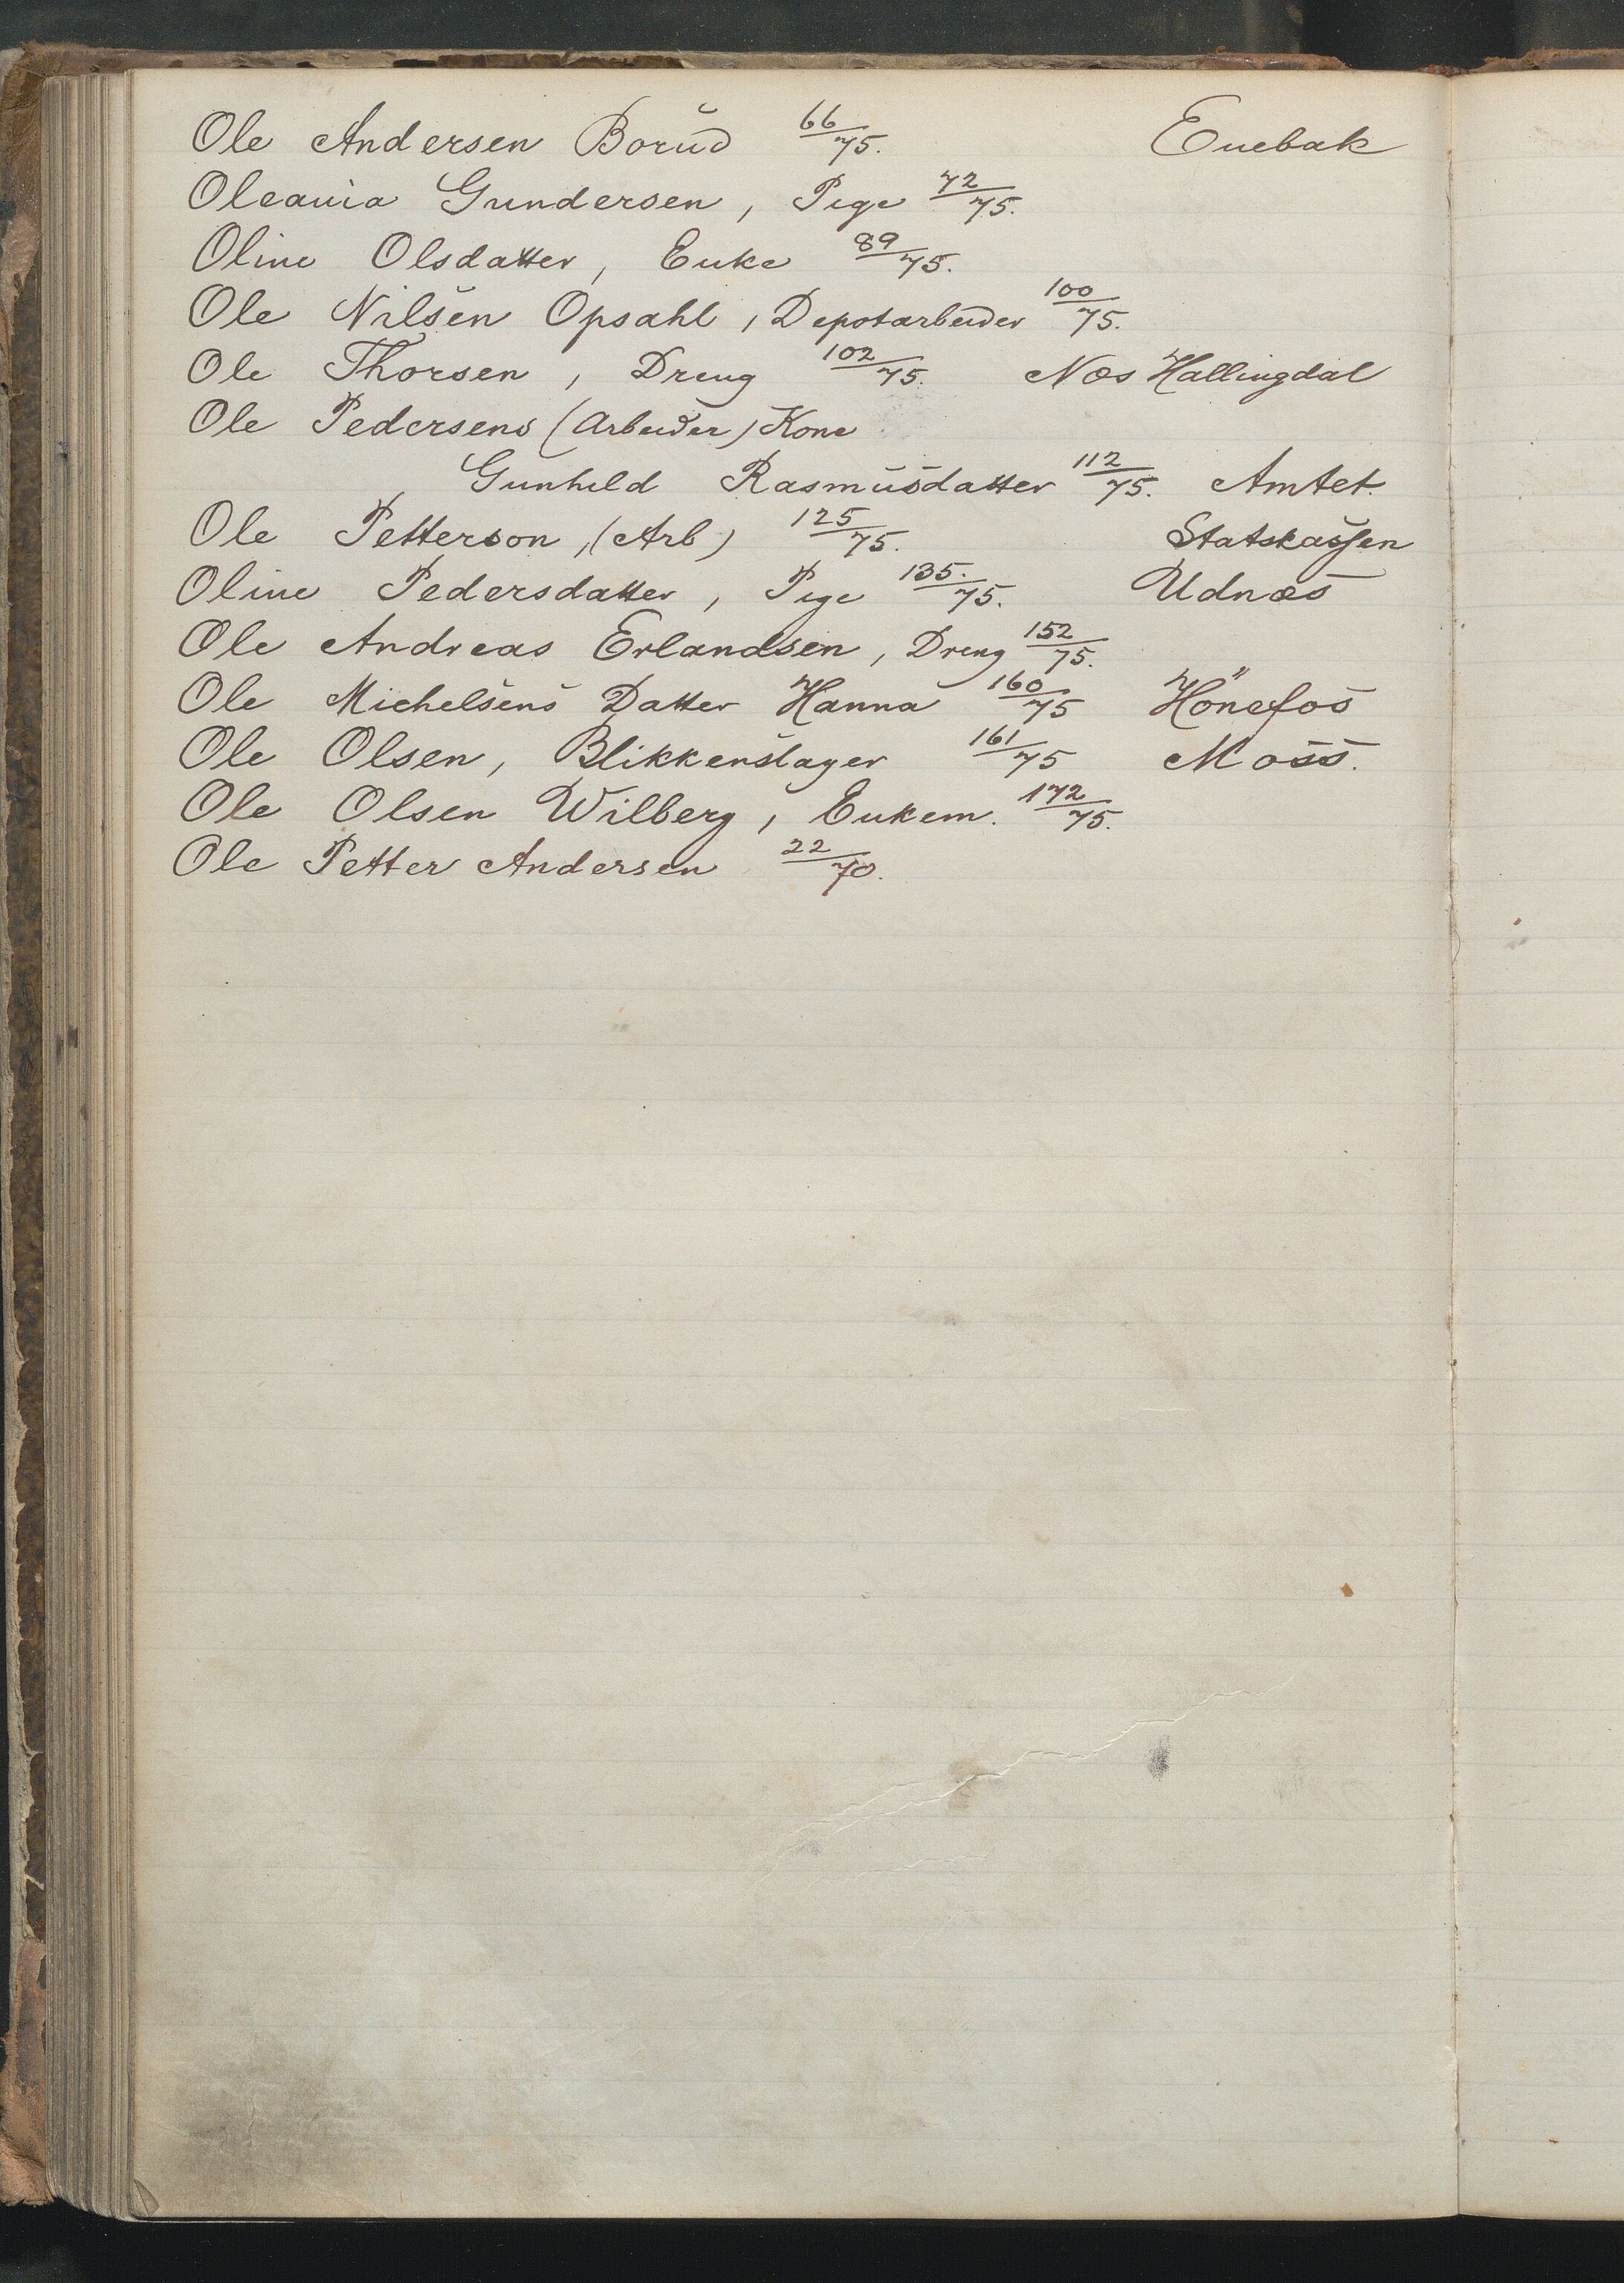 Ole Andersen Borud 66/75. Enebak
Oleania Gundersen, Pige 72/75.
Oline Olsdatter, Enke 89/75.
Ole Nilsen Opsahl, Depotarbeider 100/75.
Ole Thorsen, Dreng 102/75. Næs Hallingdal
Ole Pedersens (Arbeider) Kone
Gunhild Rasmusdatter 112/75. Amtet.
Ole Petterson, (Arb) 125/75. Statskassen
Oline Pedersdatter, Pige 135./75. Udnæs
Ole Andreas Erlandsen, Dreng 152/75.
Ole Michelsens Datter Hanna 160/75 Hönefos
Ole Olsen, Blikkenslager 161/75 Moss.
Ole Olsen Wilberg, Enkem. 172/75.
Ole Petter Andersen 22/70.